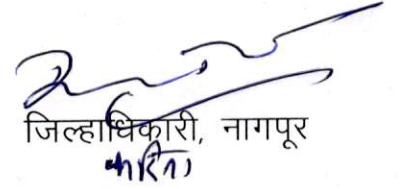 जिल्हाधिकारी, नागपूर
करिता